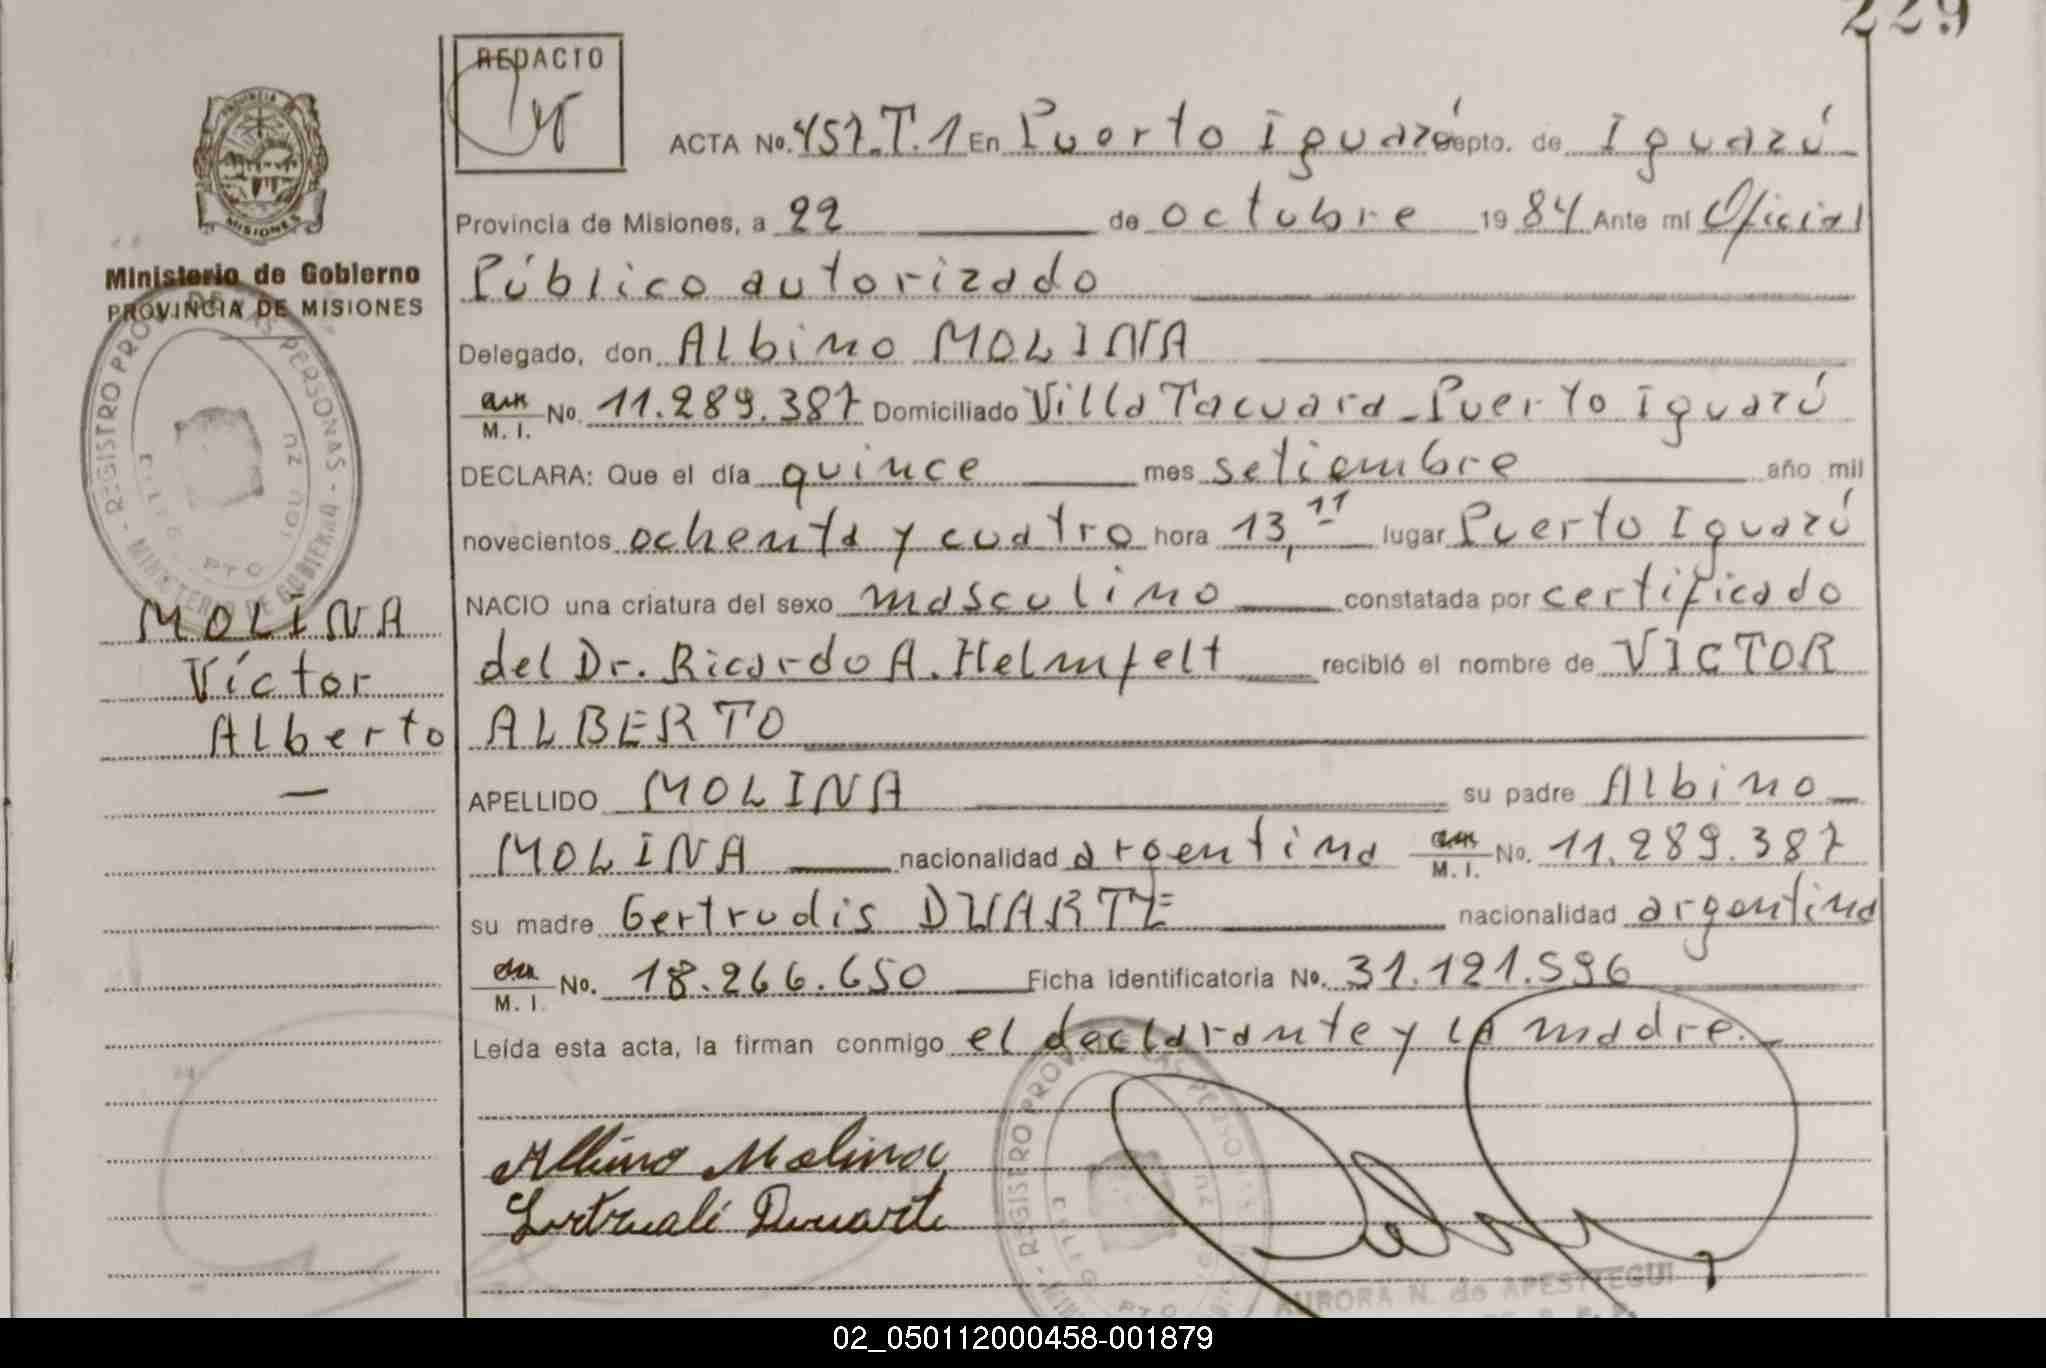 229
REDACTO
ACTA No. 457.T.1 En Puerto Iguazú Depto. de Iguazú
Provincia de Misiones, a 22 de octubre 1984 Ante mí Oficial
Público autorizado
Delegado, don Albino MOLINA
No. 11.289.387 Domiciliado Villa Tacuara - Puerto Iguazú
M. I.
DECLARA: Que el día quince mes setiembre año mil
novecientos ochenta y cuatro hora 13,11 lugar Puerto Iguazú
NACIO una criatura del sexo masculino constatada por certificado
del Dr. Ricardo A. Helmfelt recibió el nombre de VICTOR
ALBERTO
APELLIDO MOLINA su padre Albino
MOLINA nacionalidad argentina No. 11.289.387
M. I.
su madre Gertrudis DUARTE nacionalidad argentina
No. 18.266.650 Ficha identificatoria No. 31.121.596
M. I.
Leída esta acta, la firman conmigo el declarante y la madre.
Albino Molina
Duarte
AURORA N. de APESTEGUI
MISIONES
Ministerio de Gobierno
PROVINCIA DE MISIONES
MOLINA
Víctor
Alberto
02_050112000458-001879